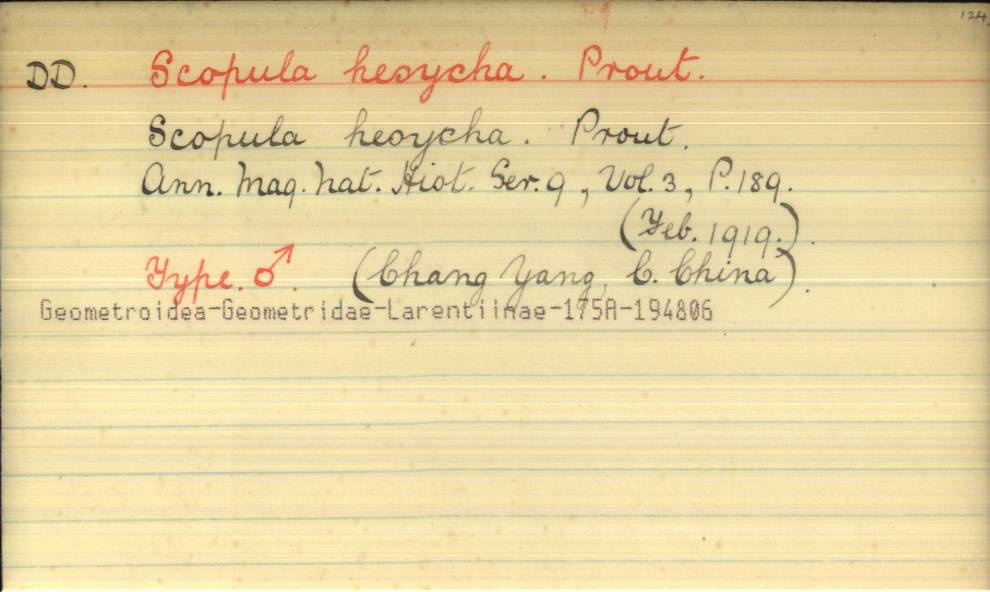 124
DD. Scopula hesycha. Prout.
Scopula hesycha. Prout.
Ann. Mag. Nat. Hist. Ser. 9, Vol. 3, P. 189.
(Feb. 1919.).
Type. ♂. (Chang Yang, C. China).
Geometroidea-Geometridae-Larentiinae-175A-194806